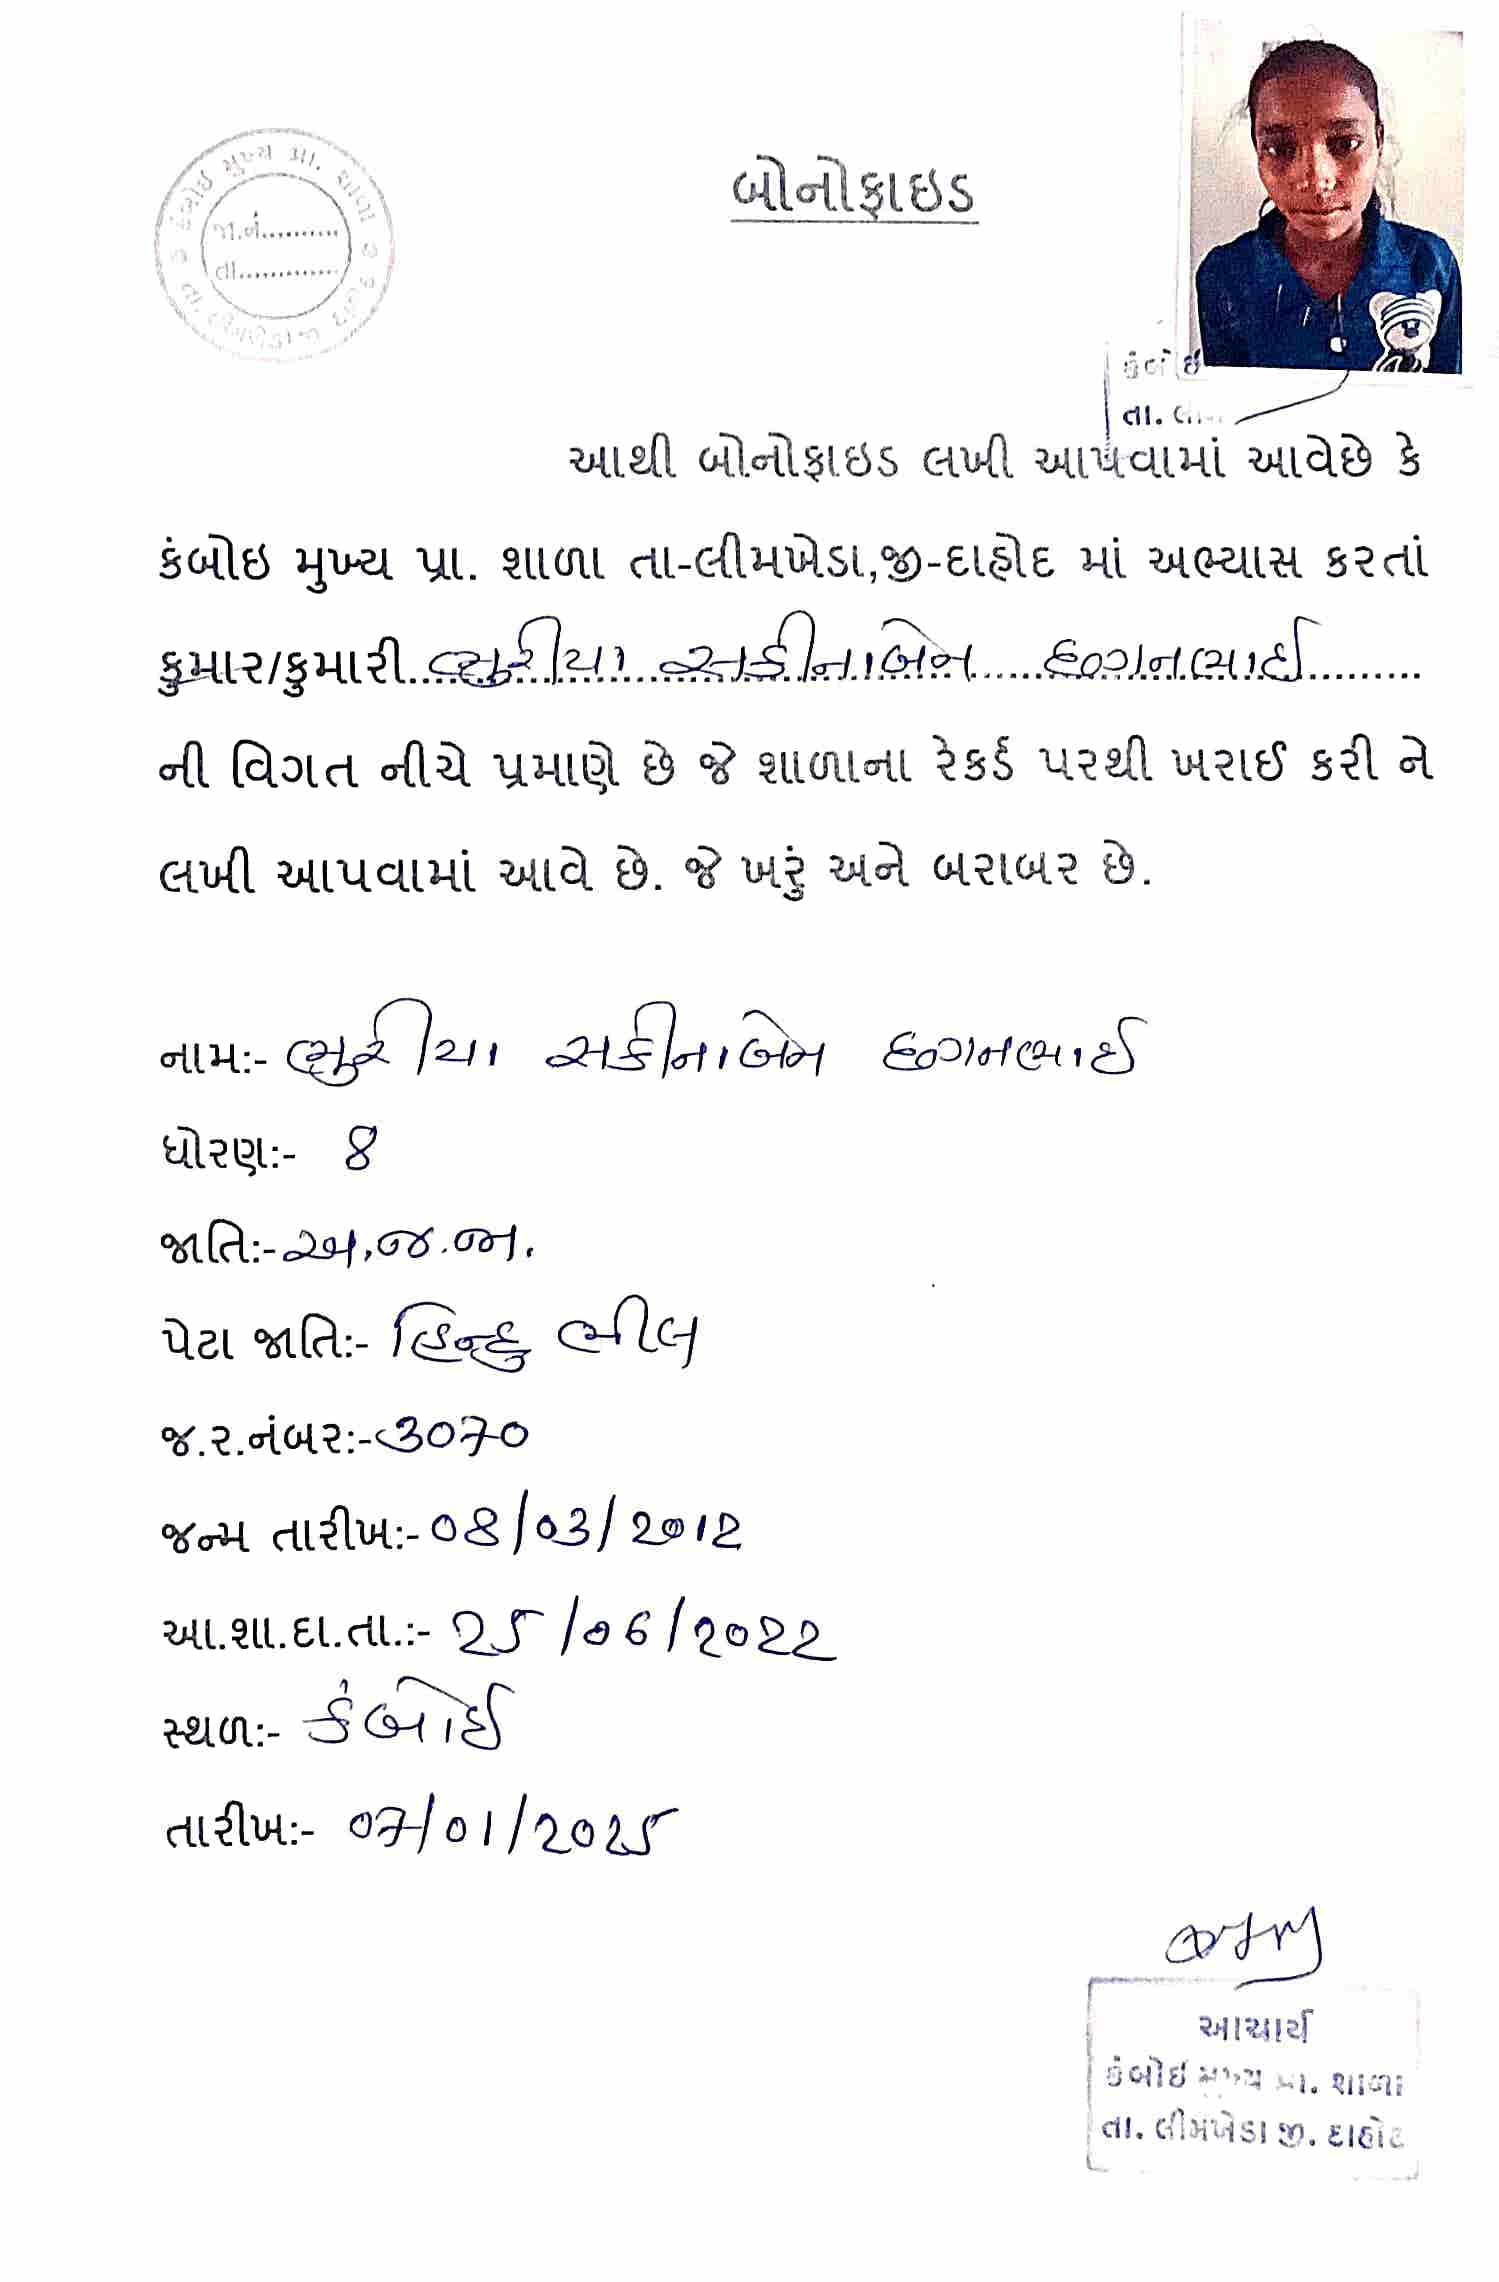 કંબોઇ મુખ્ય પ્રા. શાળા
જા.નં..........
તા.............
બોનોફાઇડ
કંબોઇ
તા.
આથી બોનોફાઇડ લખી આપવામાં આવેછે કે
કંબોઇ મુખ્ય પ્રા. શાળા તા-લીમખેડા,જી-દાહોદ માં અભ્યાસ કરતાં
કુમાર/કુમારી..ભુરીયા સકીનાબેન છગનભાઈ.........
ની વિગત નીચે પ્રમાણે છે જે શાળાના રેકર્ડ પરથી ખરાઈ કરી ને
લખી આપવામાં આવે છે. જે ખરું અને બરાબર છે.
નામ:- ભુરીયા સકીનાબેન છગનભાઈ
ધોરણ:- 8
જાતિ:- અ.જ.જા.
પેટા જાતિ:- હિન્દુ ભીલ
જ.ર.નંબર:- 3070
જન્મ તારીખ:- 08/03/2012
આ.શા.દા.તા.:- 25/06/2022
સ્થળ:- કંબોઈ
તારીખ:- 07/01/2025
આચાર્ય
કંબોઇ મુખ્ય પ્રા. શાળા
તા. લીમખેડા જી. દાહોદ